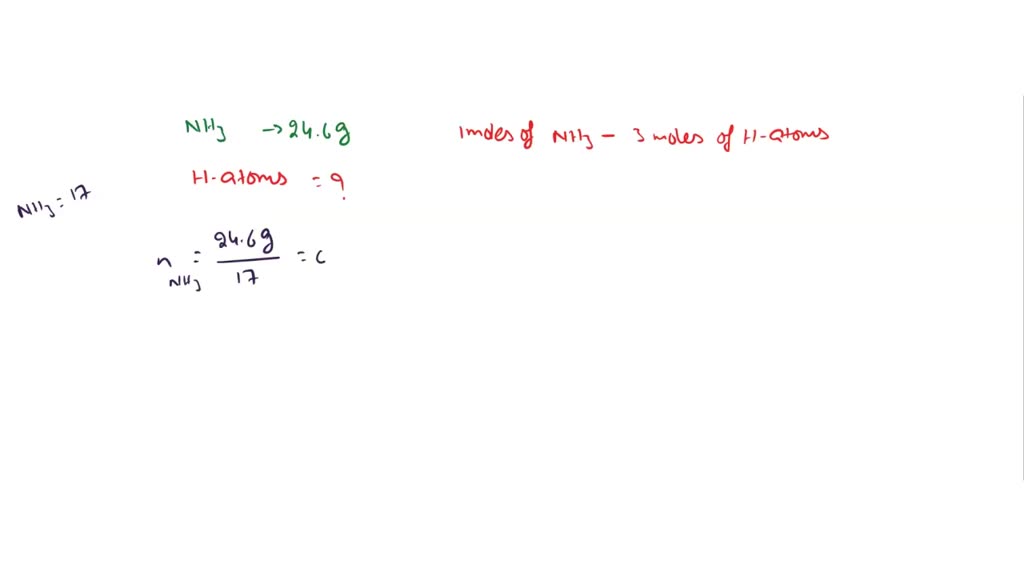 NH3 → 24.6g
1 moles of NH3 - 3 moles of H-atoms
H-atoms = ?
NH3 = 17
n NH3 = 24.6g / 17 = c